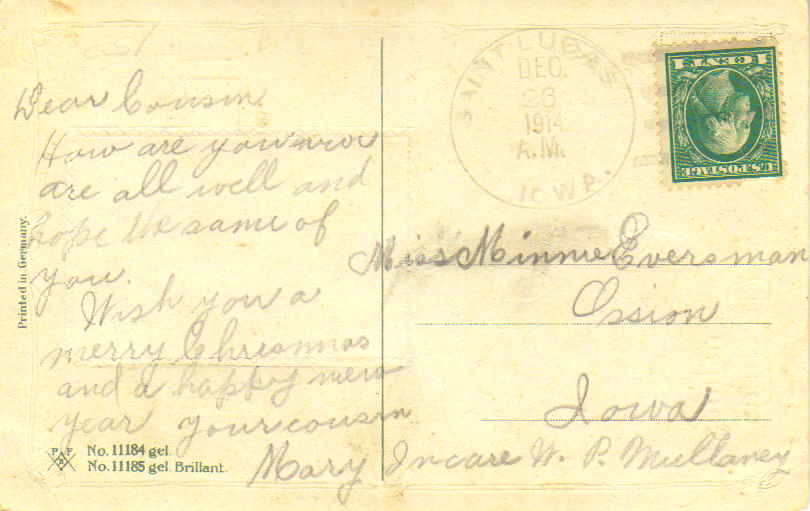 Dear Cousin
How are you now
are all well and
hope the same of
you.
Wish you a
merry Chrisnmas
and a happy new
year your cousin
Mary
Miss Minnie Eversman
Ossion
Iowa
Incare W. P. Mullaney
SAINT LUCAS
DEC.
26
1914
A.M.
IOWA.
U.S. POSTAGE
Printed in Germany.
P F
B
No. 11184 gel.
No. 11185 gel. Brillant.